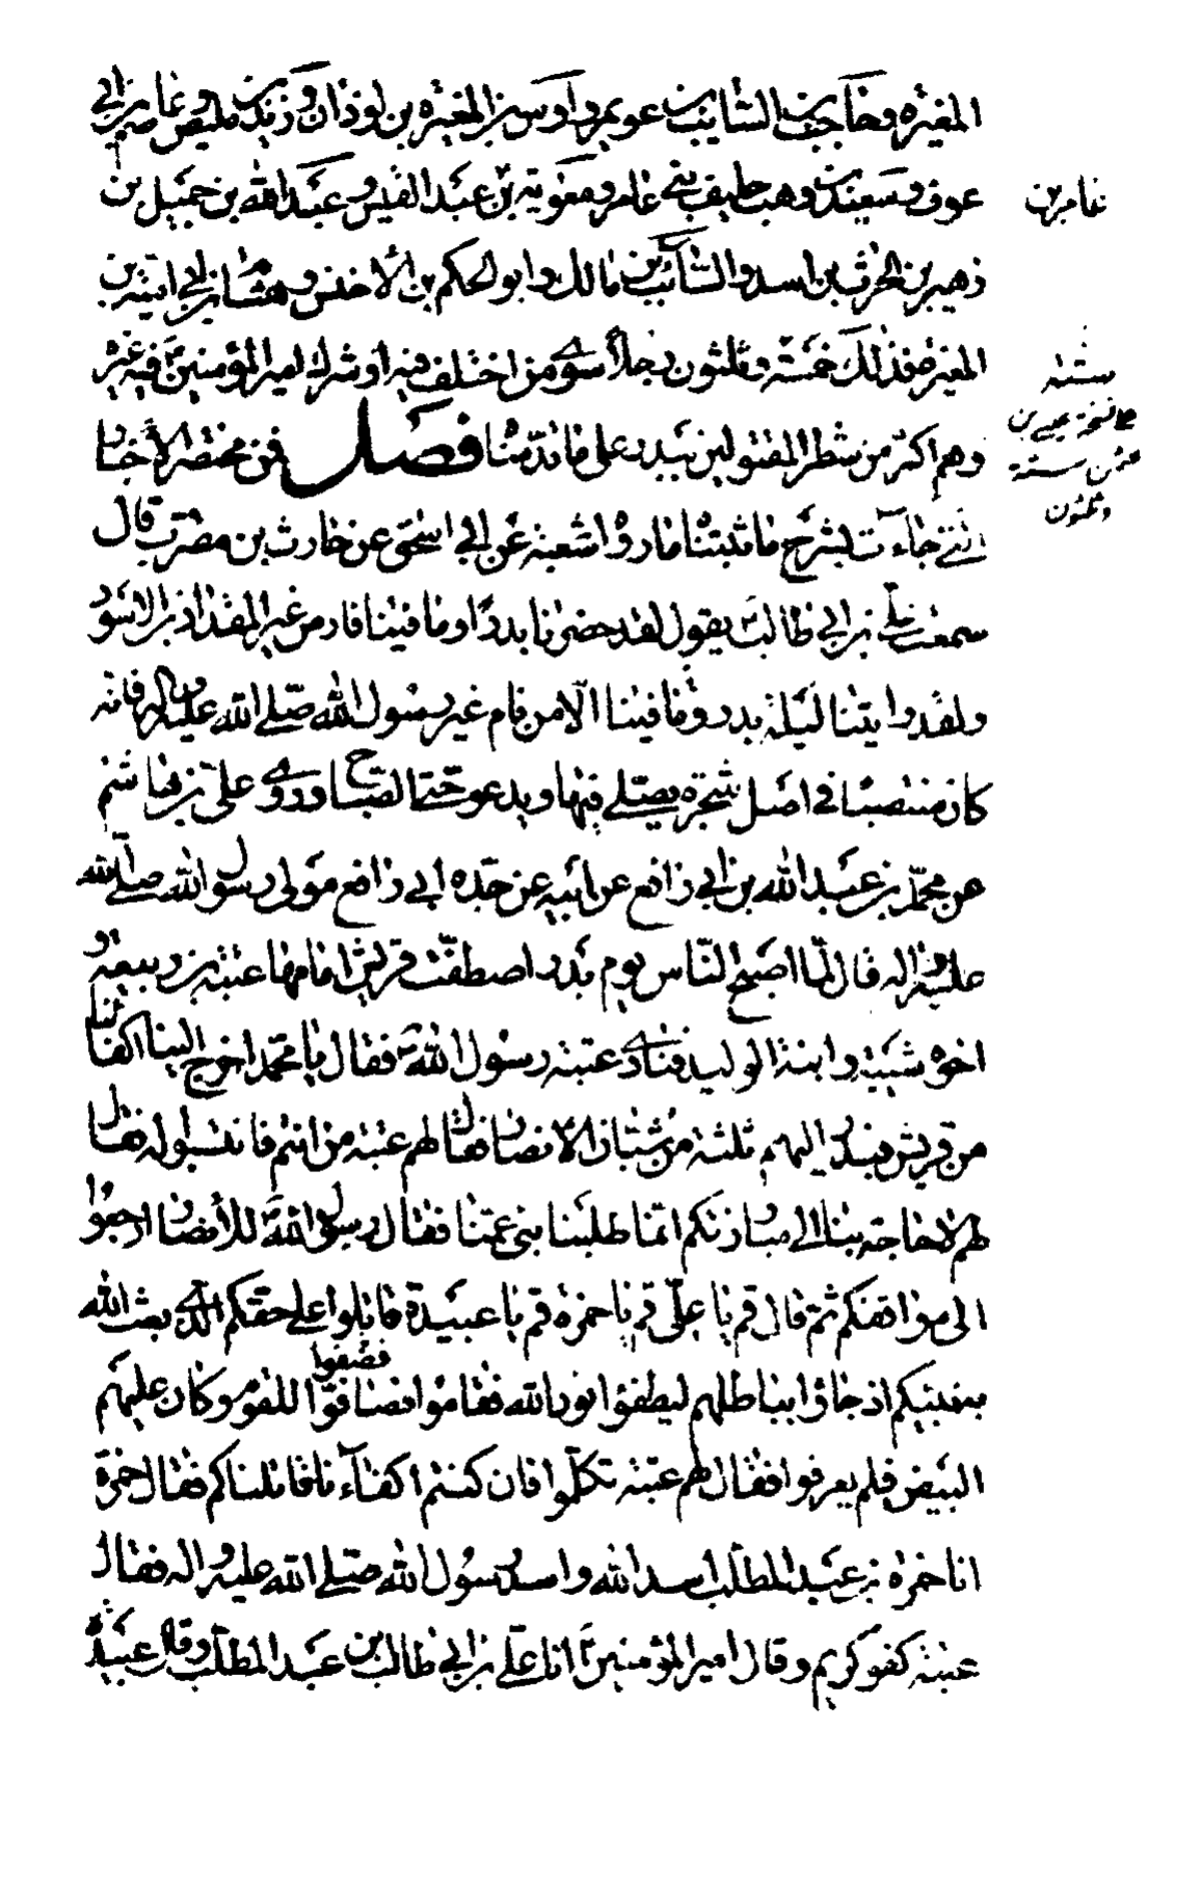 المغيرة وحاجب بن السايب بن عويمر واوس بن المغيرة بن لوذان وزيد بن مليص وعاصم بن ابي
عوف وسعيد بن وهب حليف بني عامر ومعوية بن عبد القيس وعبد الله بن جميل بن
زهير بن الحرث بن اسد والسائب بن مالك وابو الحكم بن الاخنس وهشام بن ابي امية بن
المغيرة فذلك خمسة وثلثون رجلاً سوى من اختلف فيه او شرك امير المؤمنين ع فيه غيره
وهم اكثر من شطر المقتولين ببدر على ما قدمناه فصل فمن مختصر الاخبار
التي جاءت بشرح ما اثبتناه ما رواه شعبة عن ابي اسحق عن حارث بن مضرب قال
سمعت علي بن ابي طالب ع يقول لقد حضرنا بدراً وما فينا فارس غير المقداد بن الاسود
ولقد رايتنا ليلة بدر وما فينا الّا من نام غير رسول الله صلى الله عليه واله فانه
كان منتصبا في اصل شجرة يصلي فيها ويدعو حتى الصباح وروى علي بن هاشم
عن محمد بن عبد الله بن ابي رافع عن ابيه عن جده ابي رافع مولى رسول الله صلى الله
عليه واله قال لما اصبح الناس يوم بدر اصطفت قريش امامها عتبة بن ربيعة و
اخوه شيبة وابنه الوليد فنادى عتبة رسول الله ص فقال يا محمد اخرج الينا اكفائنا
من قريش فبدر اليهم ثلثة من شبان الانصار فقال لهم عتبة من انتم فانتسبوا له فقال
لهم لا حاجة بنا الى مبارزتكم انما طلبنا بني عمنا فقال رسول الله ص للأنصار ارجعوا
الى مواقفكم ثم قال قم يا علي قم يا حمزة قم يا عبيدة قاتلوا على حقكم الذي بعث الله
به نبيكم اذ جاؤا بباطلهم ليطفؤا نور الله فقاموا فصافوا فصفوا للقوم وكان عليهم
البيض فلم يعرفوا فقال لهم عتبة تكلموا فان كنتم اكفاءنا قاتلناكم فقال حمزة
انا حمزة بن عبد المطلب اسد الله واسد رسول الله صلى الله عليه واله فقال
عتبة كفو كريم وقال امير المؤمنين ع انا علي بن ابي طالب بن عبد المطلب وقال عبيدة
عامر بن
ستة
نسخة
ستة
وثلثون